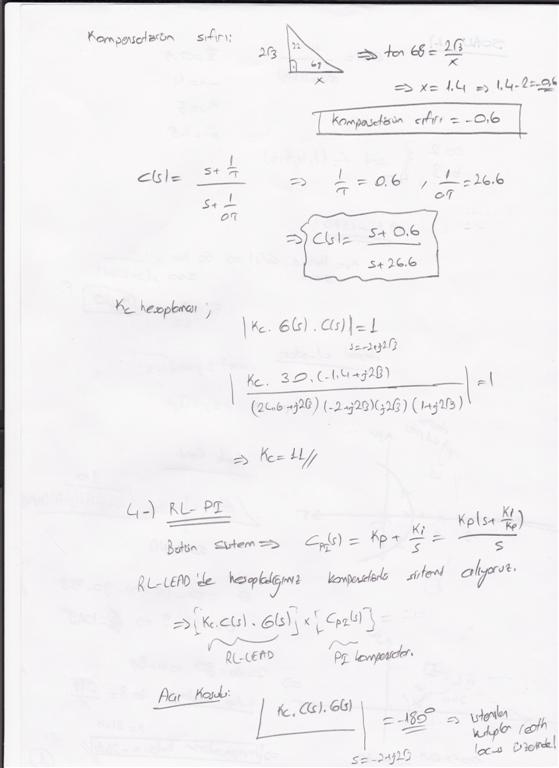 Kompansatörün sıfırı:
2√3 22 68 x ⇒ tan 68 = 2√3/x
⇒ x = 1.4 ⇒ 1.4-2=-0.6
Kompansatörün sıfırı = -0.6
C(s) = (s + 1/T)/(s + 1/αT) ⇒ 1/T = 0.6 , 1/αT = 26.6
⇒ C(s) = (s + 0.6)/(s + 26.6)
Kc hesaplaması ;
|Kc. G(s). C(s)| = 1
s=-2+j2√3
|Kc. 30. (-1.4+j2√3) / (24.6+j2√3) (-2+j2√3) (j2√3) (1+j2√3)| = 1
⇒ Kc = 11//
4-) RL-PI
Bütün sistem ⇒ CPI(s) = Kp + Ki/s = Kp(s + Ki/Kp)/s
RL-LEAD'de hesapladığımız kompansatörlü sistemi alıyoruz.
⇒ [Kc. C(s). G(s)] x [CPI(s)]
RL-LEAD PI kompansatör.
Açı Koşulu:
Kc. C(s). G(s) = -180° ⇒ istenilen
kutuplar root
locus üzerinde!
s = -2+j2√3